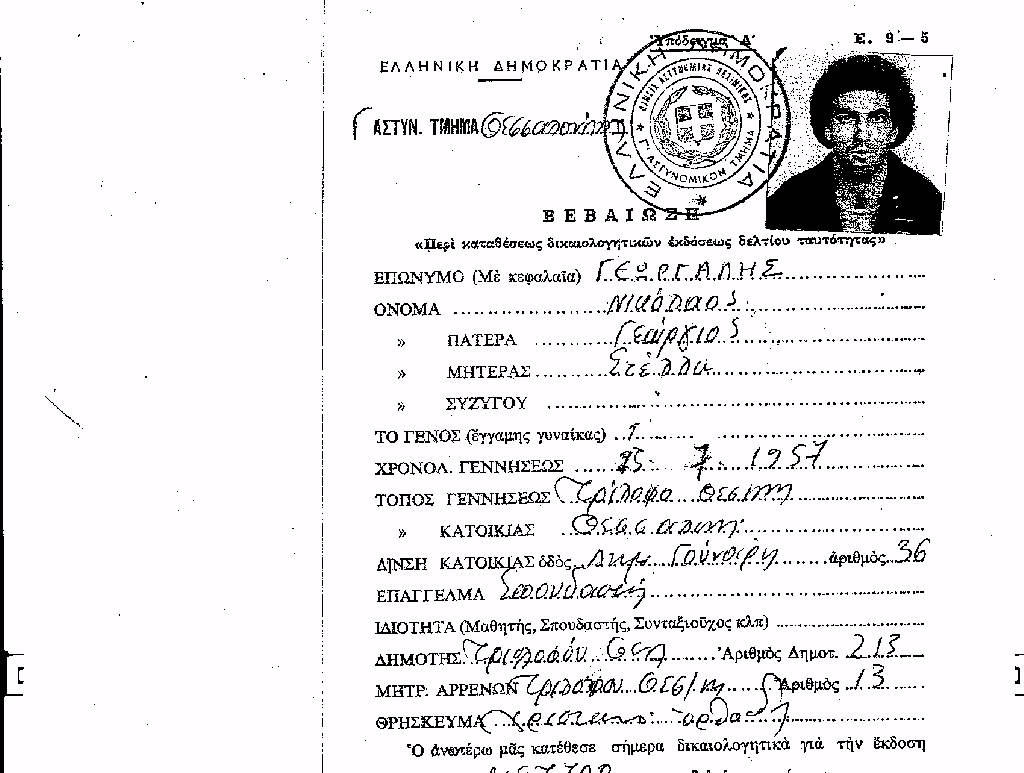 Ὑπόδειγμα Α´ Ε. 9 – 5
ΕΛΛΗΝΙΚΗ ΔΗΜΟΚΡΑΤΙΑ
Γ ΑΣΤΥΝ. ΤΜΗΜΑ Θεσσαλονίκης
ΕΛΛΗΝΙΚΗ ΔΗΜΟΚΡΑΤΙΑ
Γ ΑΣΤΥΝΟΜΙΚΟΝ ΤΜΗΜΑ
ΒΕΒΑΙΩΣΗ
«Περὶ καταθέσεως δικαιολογητικῶν ἐκδόσεως δελτίου ταυτότητας»
ΕΠΩΝΥΜΟ (Μὲ κεφαλαῖα) ΓΕΩΡΓΑΛΗΣ
ΟΝΟΜΑ Νικόλαος
» ΠΑΤΕΡΑ Γεώργιος
» ΜΗΤΕΡΑΣ Στέλλα
» ΣΥΖΥΓΟΥ
ΤΟ ΓΕΝΟΣ (ἔγγαμης γυναίκας)
ΧΡΟΝΟΛ. ΓΕΝΝΗΣΕΩΣ 25 7 1957
ΤΟΠΟΣ ΓΕΝΝΗΣΕΩΣ Τρίλοφο Θεσ/νικη
» ΚΑΤΟΙΚΙΑΣ Θεσσαλονικη
Δ)ΝΣΗ ΚΑΤΟΙΚΙΑΣ ὁδὸς Δημ. Γούναρη ἀριθμὸς 36
ΕΠΑΓΓΕΛΜΑ Σπουδαστής
ΙΔΙΟΤΗΤΑ (Μαθητής, Σπουδαστής, Συνταξιοῦχος κλπ)
ΔΗΜΟΤΗΣ Τριλόφου Θεσ/ Ἀριθμὸς Δημοτ. 213
ΜΗΤΡ. ΑΡΡΕΝΩΝ Τριλόφου Θεσ/νικη Ἀριθμὸς 13
ΘΡΗΣΚΕΥΜΑ
Ὁ ἀνωτέρω μᾶς κατέθεσε σήμερα δικαιολογητικὰ γιὰ τὴν ἔκδοση